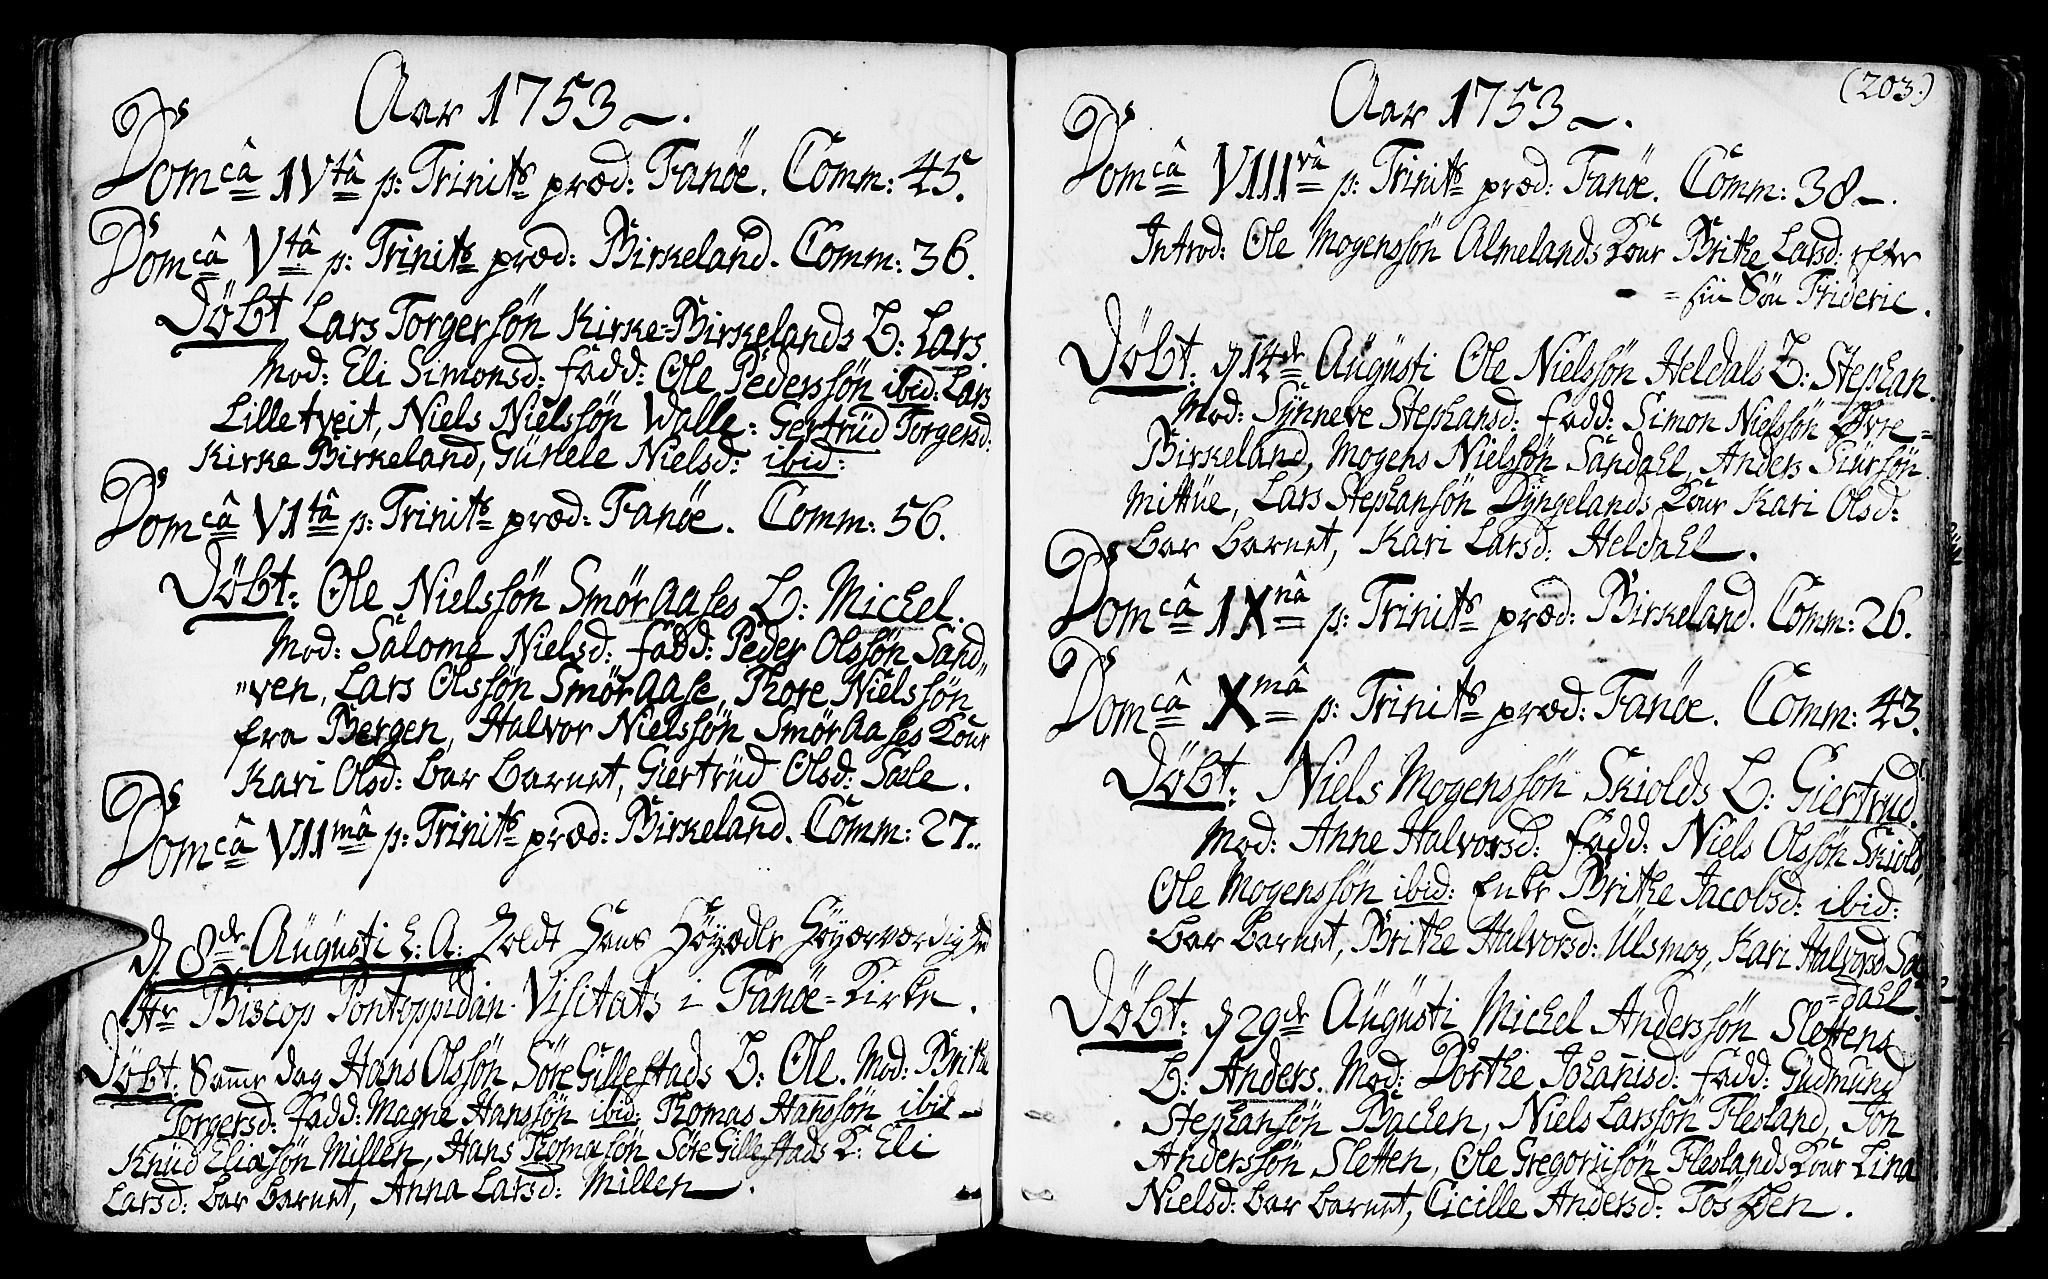 Aar 1753 ~.
Domcâ IVtâ p: Trinits præd: Fanöe. Comm: 45.
Domcâ Vtâ p: Trinits præd: Birkeland. Comm: 36.
Döbt Lars Torgersön Kirke=Birkelands B: Lars.
Mod: Eli Simonsd: fadd: Ole Pederssön ibid: Lars
Lilletveit, Niels Nielssön Walle: Gertrüd Torgersd:
Kirke Birkeland, Günele Nielsd: ibid:
Domcâ VItâ p: Trinits præd: Fanöe. Comm: 56.
Döbt: Ole Nielssön SmörAases B: Michel.
Mod: Salome Nielsd: fadd: Peder Olssön Sand„
„ven, Lars Olssön SmörAase, Thore Nielssön
fra Bergen, Halvor Nielssön SmörAases Kour
Kari Olsd: bar barnet, Giertrüd Olsd: Sæle.
Domcâ VIImâ p: Trinits præd: Birkeland. Comm: 27..
d 8de Augüsti h: A: Holdt Hans Höyædle Höyærværdighed
Hr Biscop Pontoppidan Visitats i Fanöe=Kirke.
Döbt: Samme dag Hans Olssön SöreGillestads B: Ole. Mod: Brithe
Torgersd: Fadd: Magne Hanssön ibid: Thomas Hanssön ibid
Knüd Eliasön Millen, Hans Thomasön SöreGillestads K: Eli
Larsd: bar barnet, Anna Larsd: Millen.
Aar 1753 ~. (203.)
Domcâ VIIIvâ p: Trinits præd: Fanöe. Comm: 38 ~.
Introd: Ole Mogenssön Almelands Kour Brithe Larsd: efter
= sin Sön Frideric.
Döbt: d 14de Augüsti Ole Nielssön Heldals B: Stephan.
Mod: Synneve Stephansd: fadd: Simon Nielssön Övre=
Birkeland, Mogens Nielssön Sandahl, Anders Siursön
Mittüe, Lars Stephansön Dyngelands Kour Kari Olsd:
bar barnet, Kari Larsd: Heldahl.
Domcâ IXnâ p: Trinits præd: Birkeland. Comm: 26.
Domcâ Xmâ p: Trinits præd: Fanöe. Comm: 43.
Döbt: Niels Mogenssön Skiolds B: Giertrud.
Mod: Anne Halvorsd: fadd: Niels Olssön Skiold,
Ole Mogenssön ibid: Enke Brithe Jacobsd: ibid:
bar barnet, Brithe Halvorsd: Ülsmog, Kari Halvorsd San
=dahl.
Döbt: d 29de Augüsti Michel Anderssön Slettens
B: Anders. Mod: Dorthe Johanisd: fadd: Gudmund
Stephansön Bachen, Niels Larssön Flesland, Jon
Anderssön Sletten, Ole Gregoriisön Fleslands Kour Lina
Nielsd: bar barnet, Cicille Andersd: